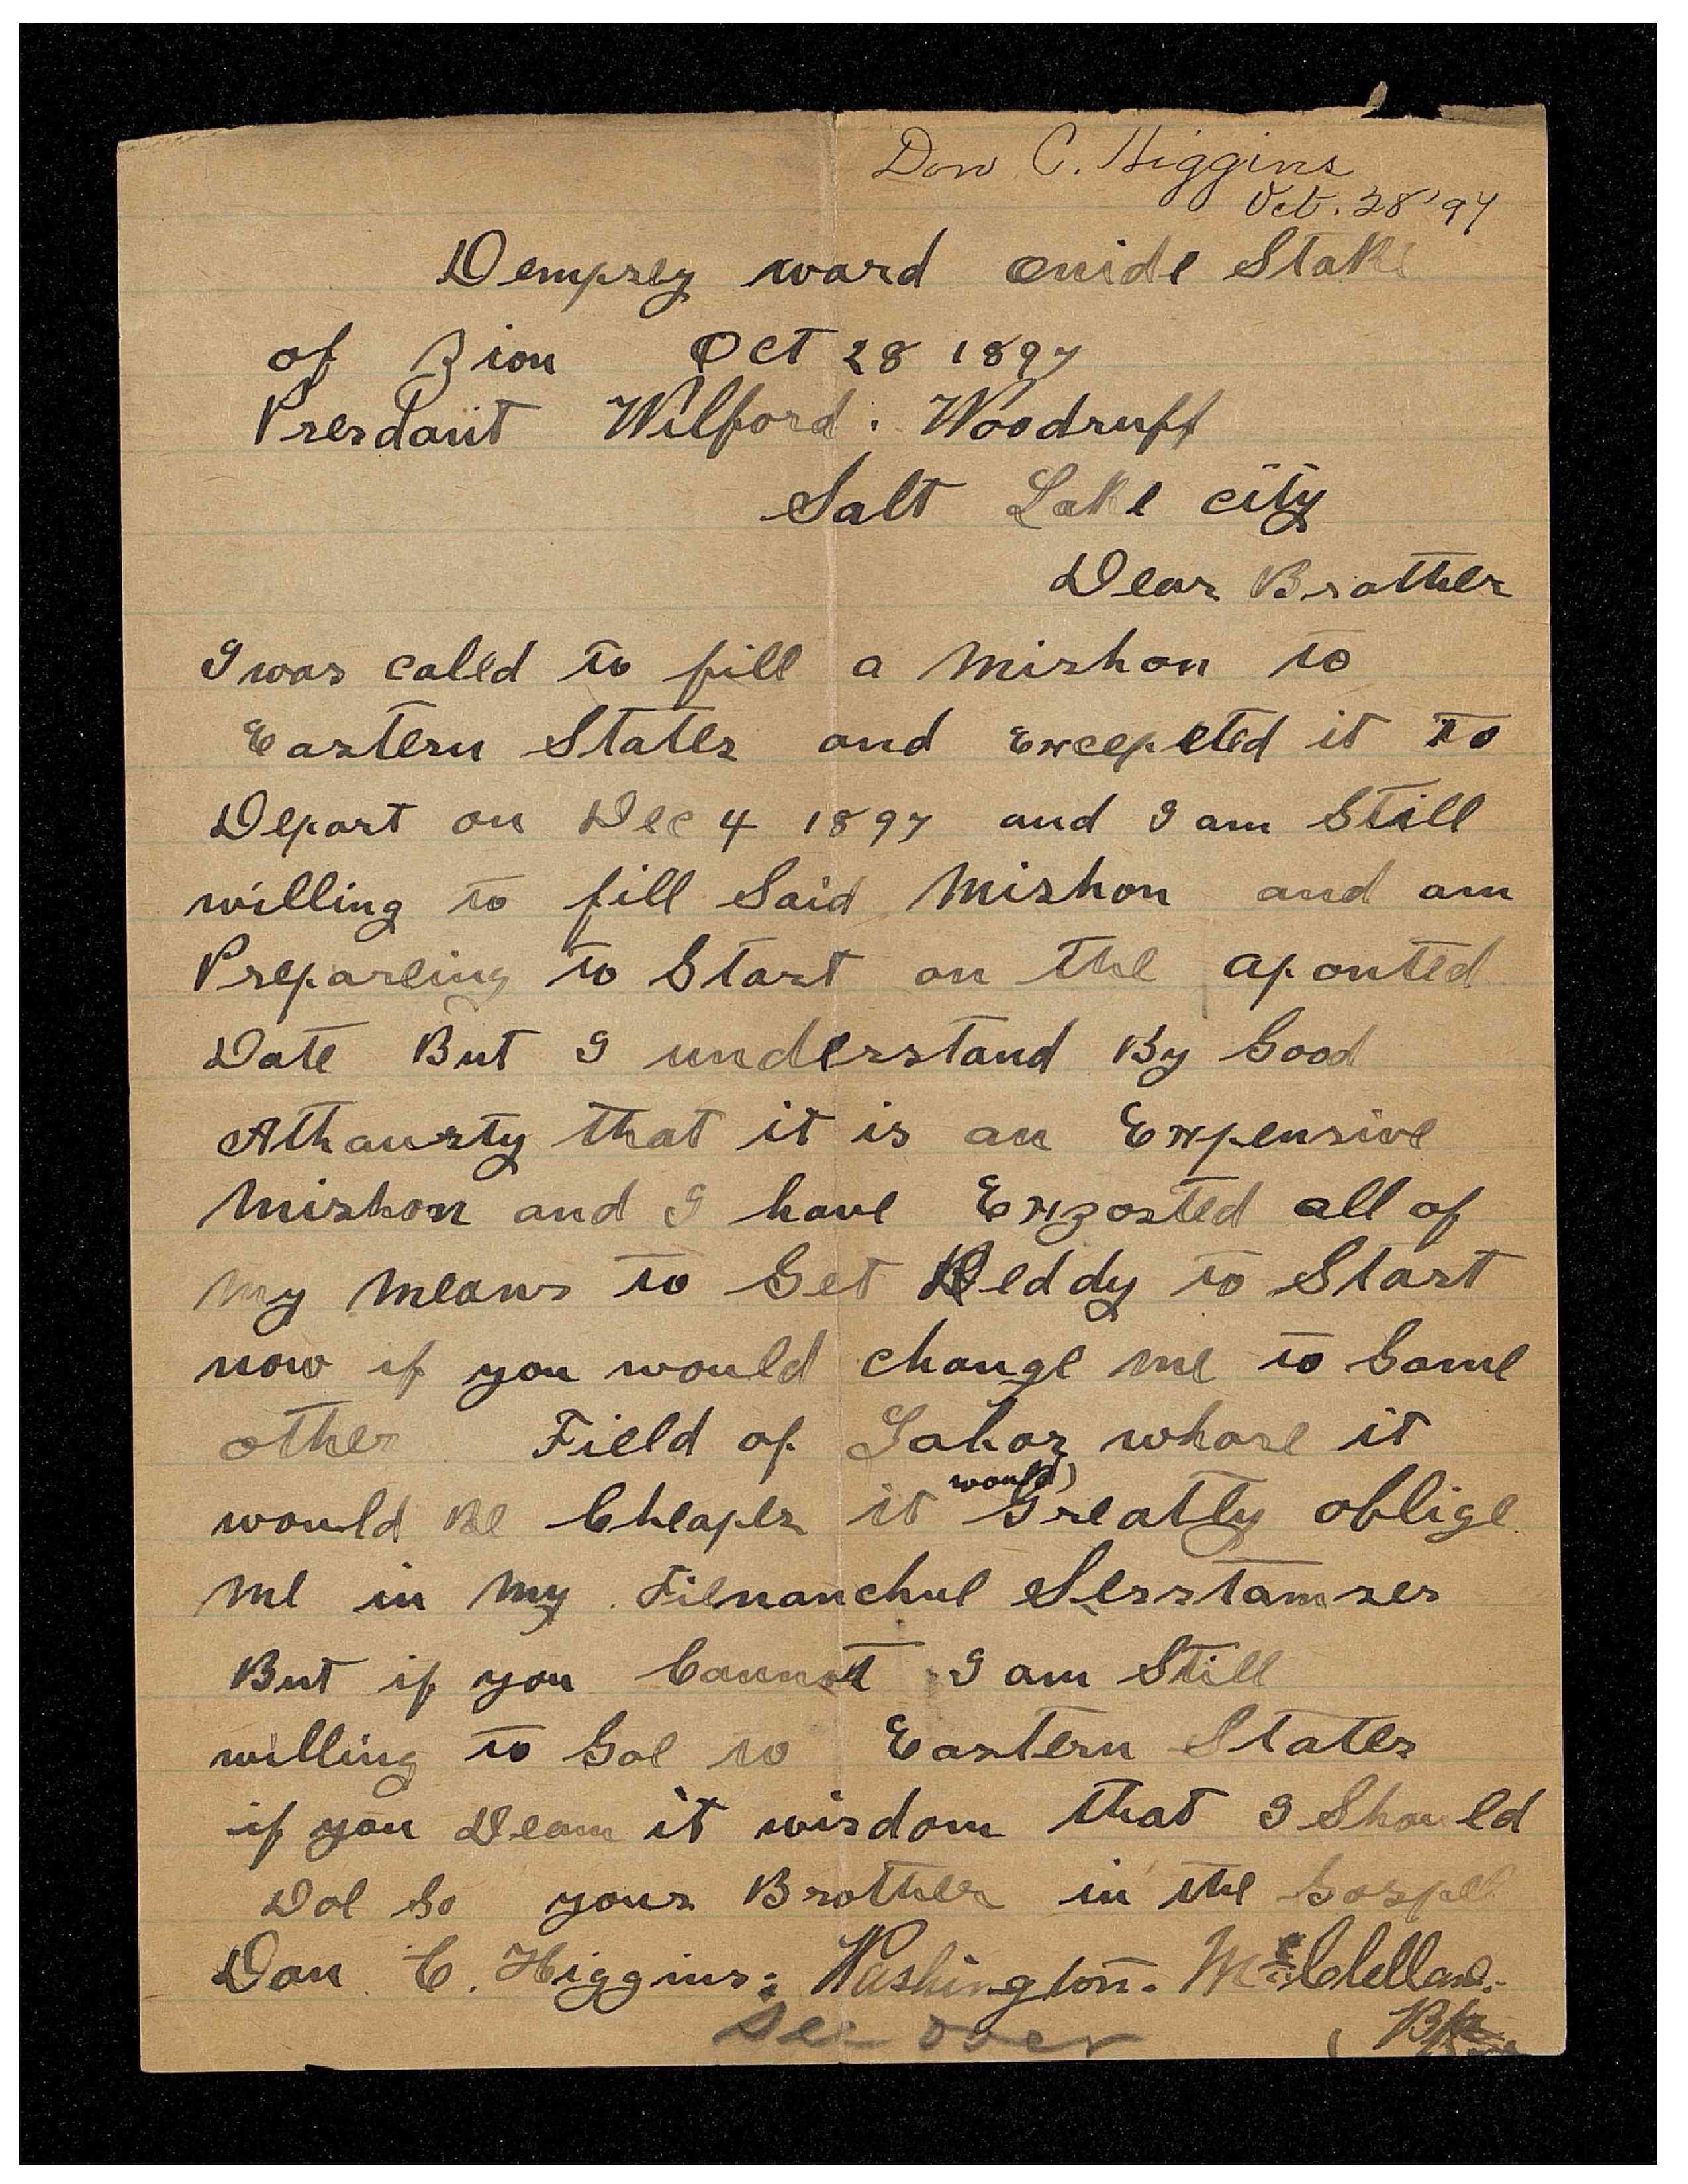 Don C. Higgins
Oct. 28 '97
Dempsey ward onide Stake
of Zion Oct 28 1897
Presdant Wilford. Woodruff
Salt Lake city
Dear Brother
I was caled to fill a Mishon to
Eastern States and Excepeted it to
Depart on Dec 4 1897 and I am Still
willing to fill Said Mishon and am
Prepareing to Start on the aponted
Date But I understand By Good
Athaurty that it is an Expensive
Mishon and I have Exzosted all of
my means to Get Reddy to Start
now if you would change me to Some
other Field of Labor whare it
would Be Cheaper it would Greatly oblige
me in my Fienanchul Serstamses
But if you Cannot I am Still
willing to Goe to Eastern States
if you Deam it wisdom that I Should
Doe So your Brother in the Gospel
Don C. Higgins; Washington. McClellan.
Bp
See over